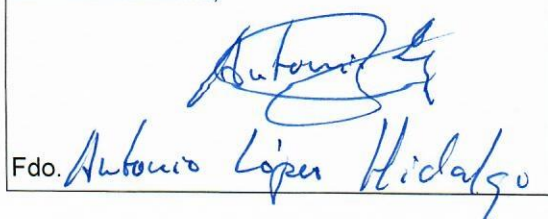 Antonio
Fdo. Antonio López Hidalgo